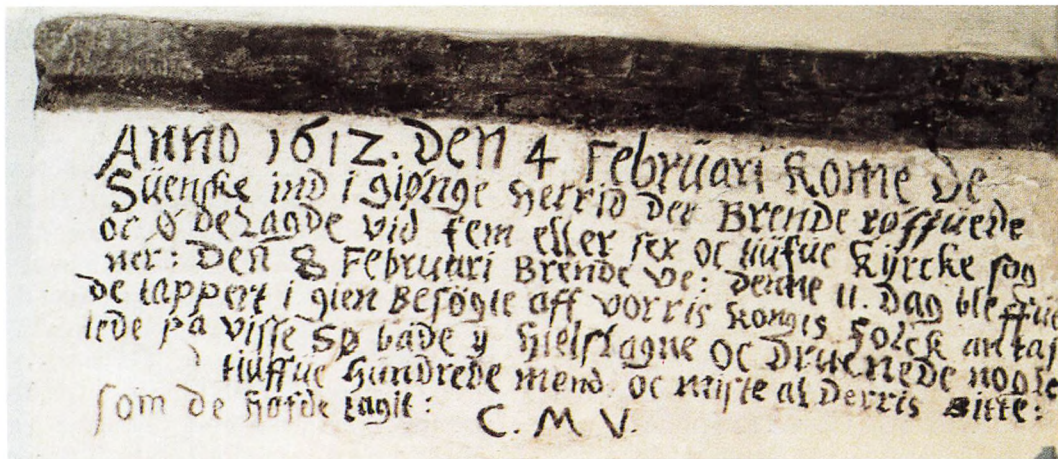 Anno 1612. Den 4 Februari kome de
Suenske ind i giønge herrid der Brende røffuede
oc ø de Lagde vid fem eller sex oc tiufue Kyrcke sog
ner: Den 8 Februari Brende Ve: denne 11. Dag bleffue
de tappert i gien Besögte aff vorris kongis Folck antaf
lede på Visse Sø både y hielslagne oc Druenede nogle
tiuffue hundrede mend oc miste al Derris Bitte:
som de hofde tagit:
C. M V.